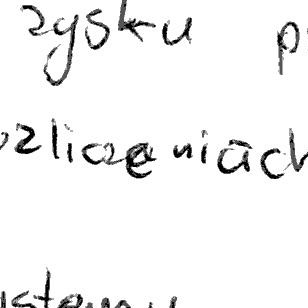 zysku p
ozliczeniach
ystemu